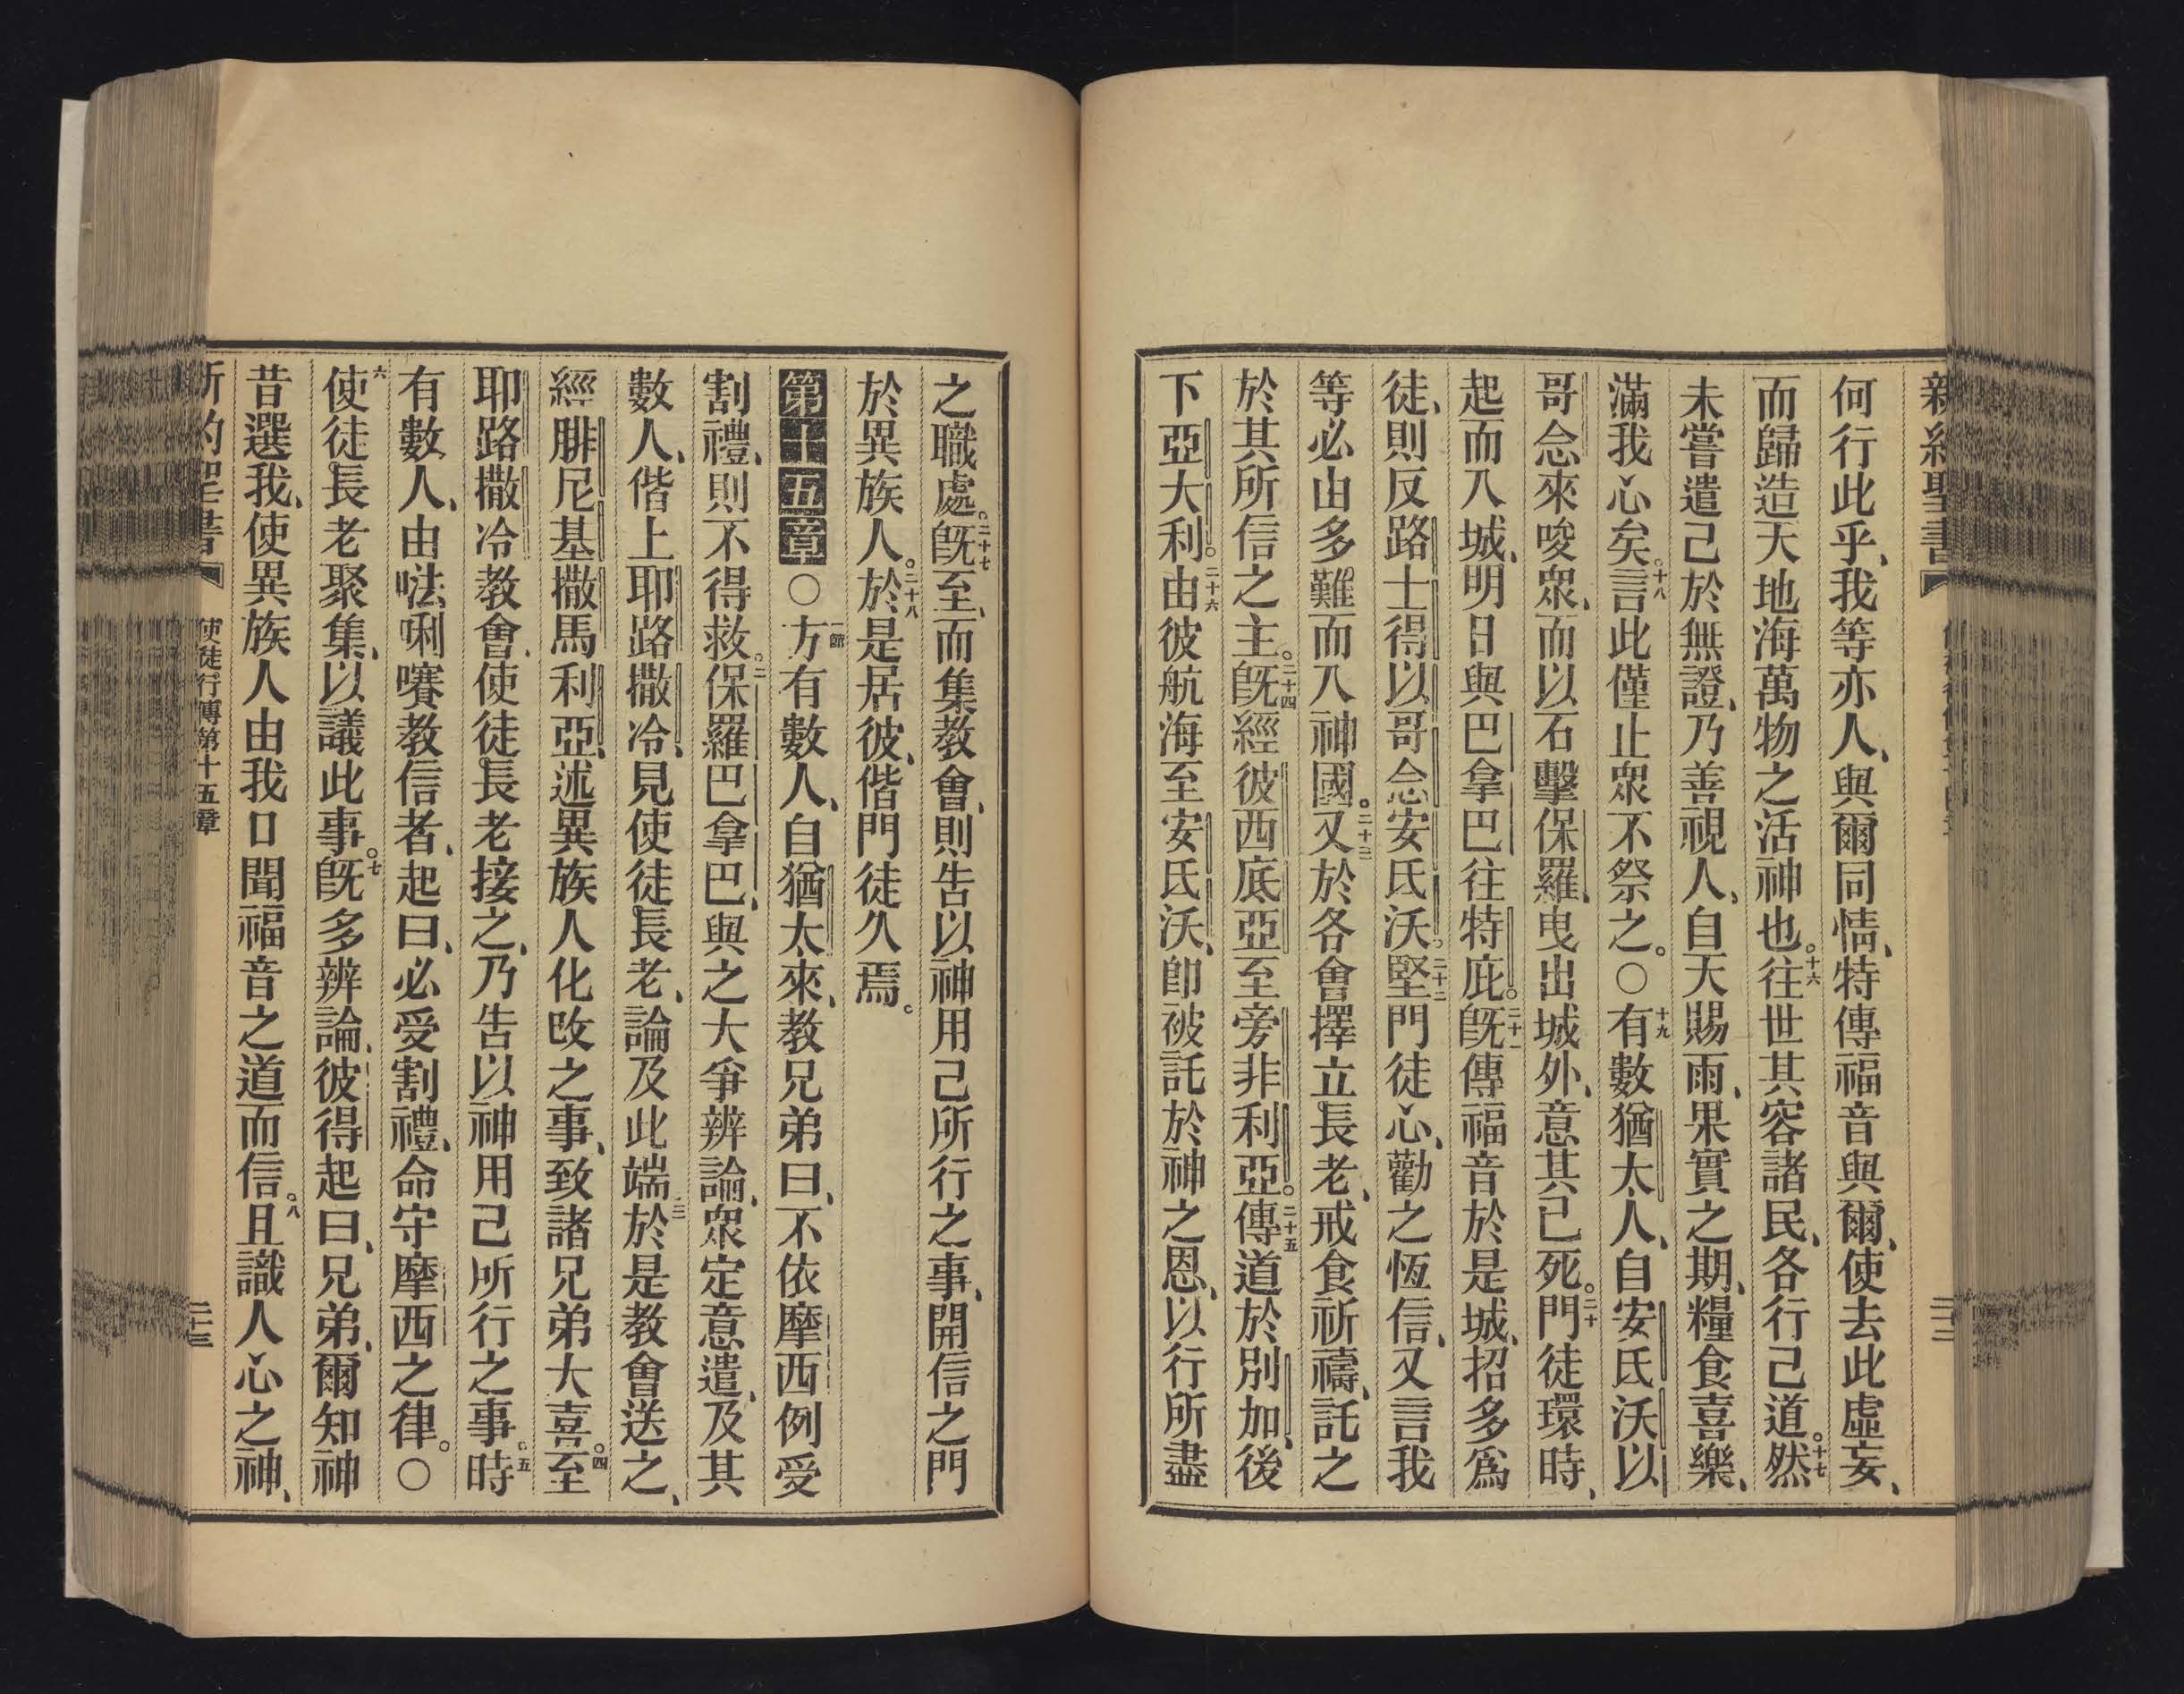 新約聖書
二十二
何行此乎、我等亦人、與爾同情、特傳福音與爾、使去此虛妄、
而歸造天地海萬物之活神也。十六往世其容諸民、各行己道。十七然
未嘗遣己於無證、乃善視人、自天賜雨、果實之期、糧食喜樂、
滿我心矣。十八言此僅止眾不祭之。○十九有數猶太人、自安氏沃以
哥念來唆眾、而以石擊保羅、曳出城外、意其已死。二十門徒環時、
起而入城、明日與巴拿巴往特庇。二十一旣傳福音於是城、招多爲
徒、則反路士得以哥念安氏沃。二十二堅門徒心、勸之恆信、又言我
等必由多難而入神國。二十三又於各會擇立長老、戒食祈禱、託之
於其所信之主。二十四旣經彼西底亞至旁非利亞。二十五傳道於別加、後
下亞大利。二十六由彼航海至安氏沃、卽被託於神之恩、以行所盡
之職處。二十七旣至、而集教會、則告以神用己所行之事、開信之門
於異族人。二十八於是居彼、偕門徒久焉。
第十五章○一節方有數人、自猶太來、教兄弟曰、不依摩西例受
割禮、則不得救。二保羅巴拿巴、與之大爭辨論、眾定意遣、及其
數人、偕上耶路撒冷、見使徒長老、論及此端三於是教會送之、
經腓尼基撒馬利亞、述異族人化改之事、致諸兄弟大喜。四至
耶路撒冷教會、使徒長老接之、乃告以神用己所行之事。五時
有數人、由𠵽唎㘔教信者、起曰、必受割禮、命守摩西之律。○
六使徒長老聚集、以議此事。七旣多辨論、彼得起曰、兄弟、爾知神
昔選我、使異族人由我口聞福音之道而信。八且識人心之神、
新約聖書
使徒行傳第十五章
二十三